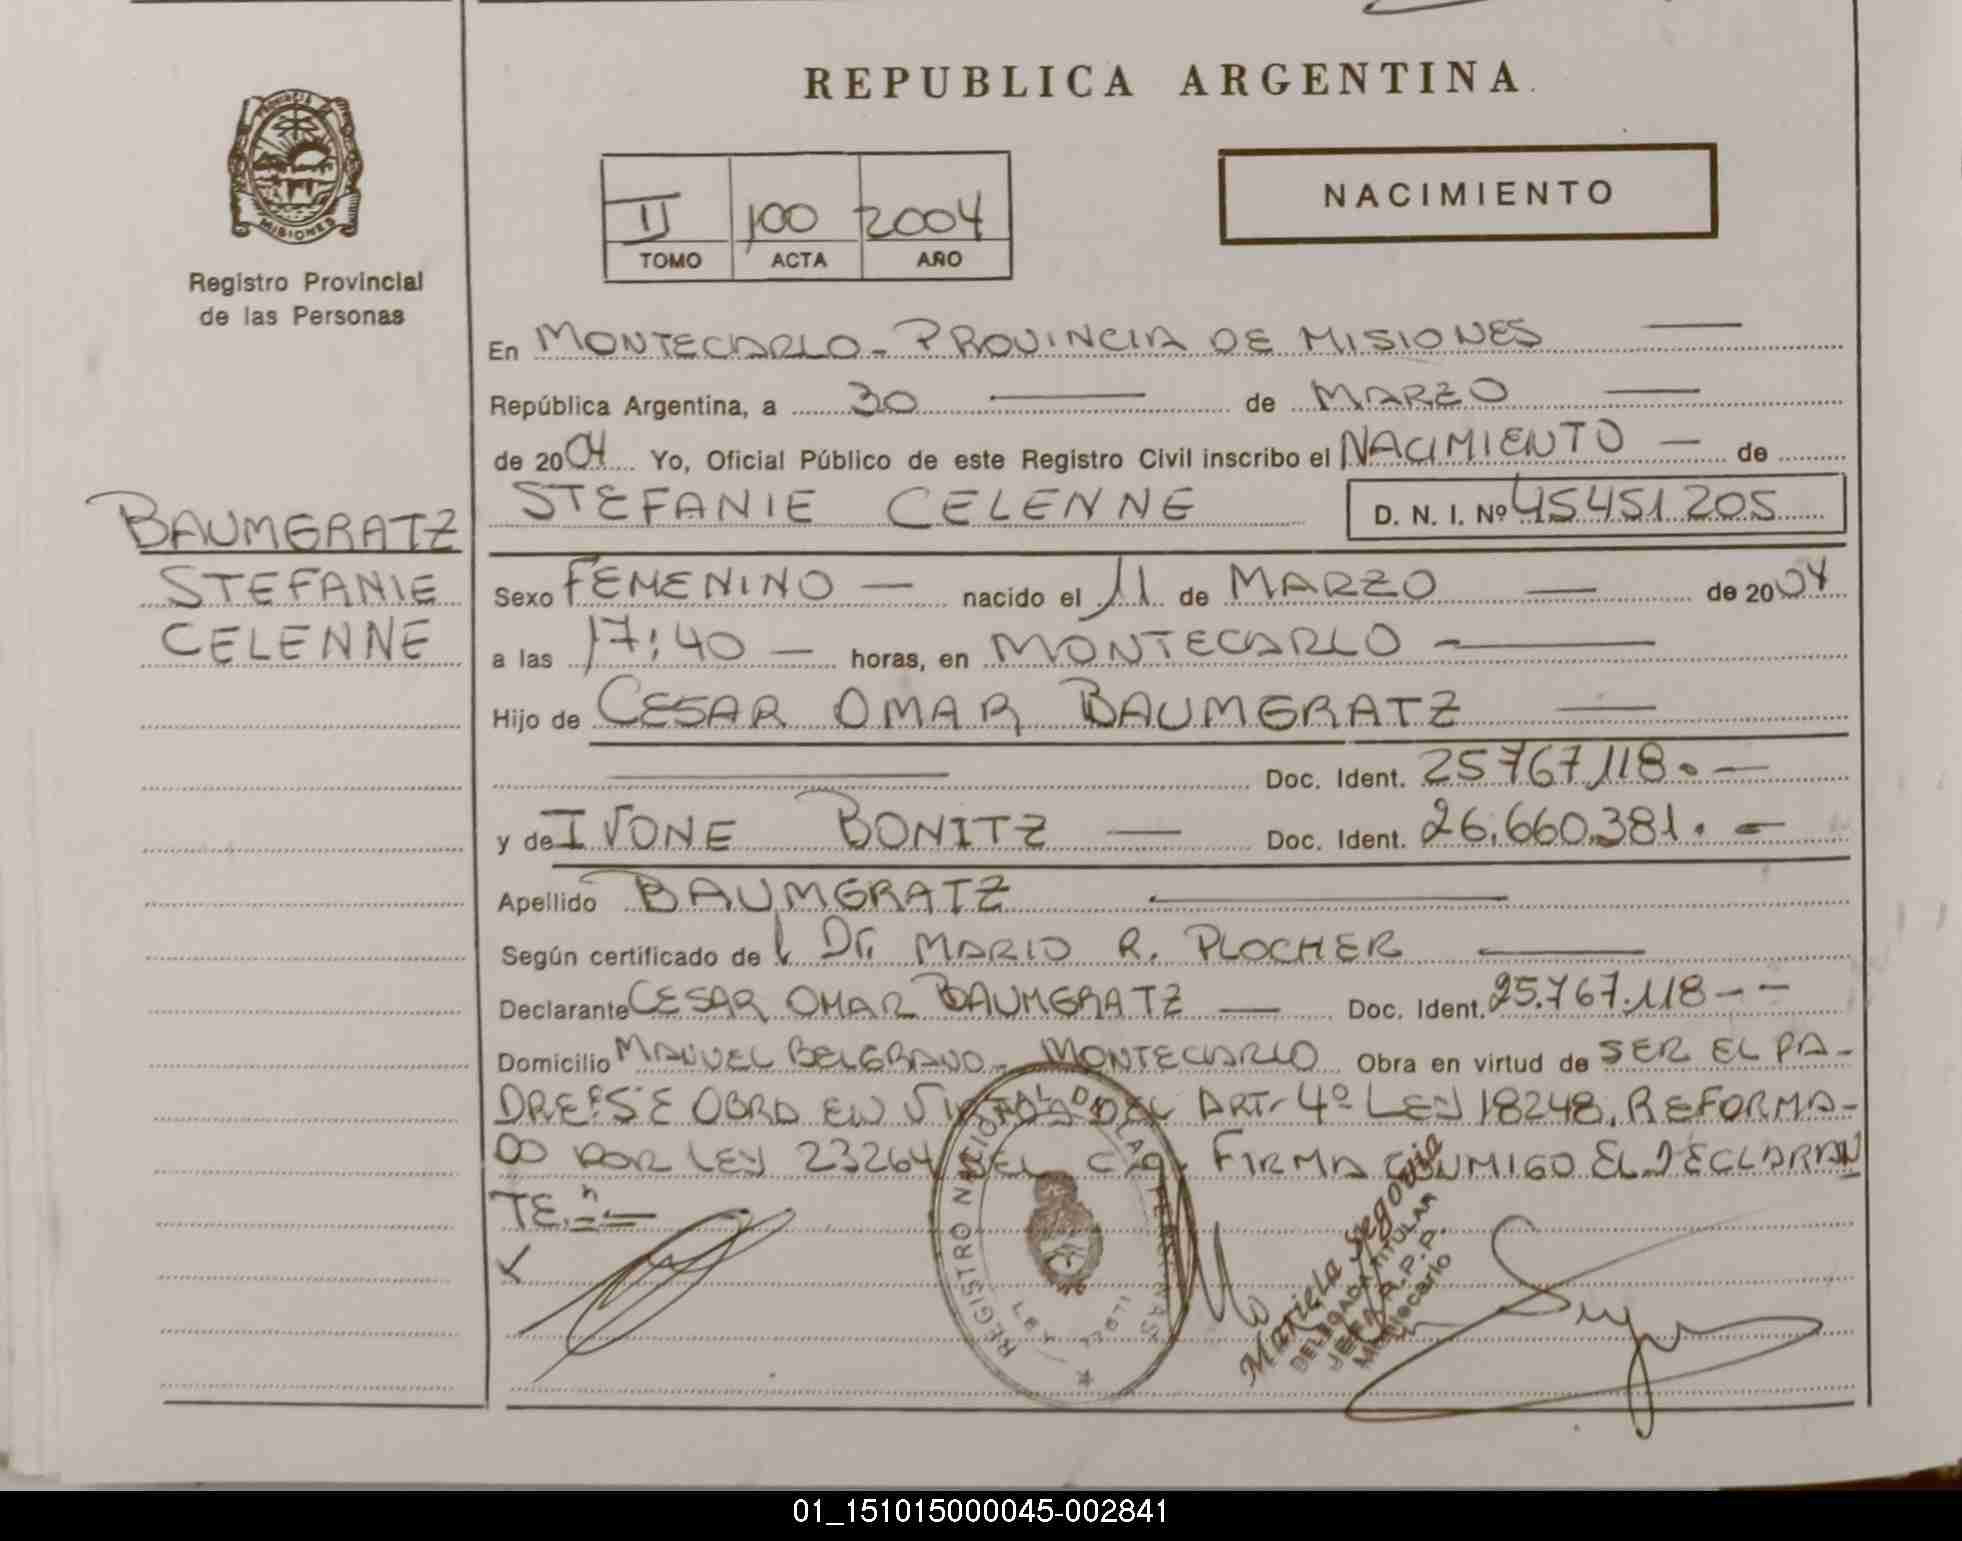 REPUBLICA ARGENTINA
PROVINCIA
MISIONES
Registro Provincial
de las Personas
NACIMIENTO
II 100 2004
TOMO ACTA AÑO
En MONTECARLO - PROVINCIA DE MISIONES
República Argentina, a 30 de MARZO
de 2004 Yo, Oficial Público de este Registro Civil inscribo el NACIMIENTO — de
STEFANIE CELENNE D. N. I. Nº 45451.205
BAUMGRATZ
STEFANIE
CELENNE
Sexo FEMENINO — nacido el 11 de MARZO — de 2004
a las 17:40 — horas, en MONTECARLO —
Hijo de CESAR OMAR BAUMGRATZ —
Doc. Ident. 25767.118. —
y de IVONE BONITZ — Doc. Ident. 26.660.381. —
Apellido BAUMGRATZ —
Según certificado de l Dr. MARIO R. PLOCHER —
Declarante CESAR OMAR BAUMGRATZ — Doc. Ident. 25.767.118 - -
Domicilio MANUEL BELGRANO - MONTECARLO Obra en virtud de SER EL PA-
DRE: SE OBRA EN VIRTUD DEL ART- 4º LEY 18248, REFORMA-
DO POR LEY 23264 DEL C.A. FIRMA CONMIGO EL DECLARAN
TE. —
REGISTRO NACIONAL DE LAS PERSONAS
LEY 13671
Mariela Segovia
DELEGADA TITULAR
JEFA R.P.P.
Montecarlo
01_151015000045-002841